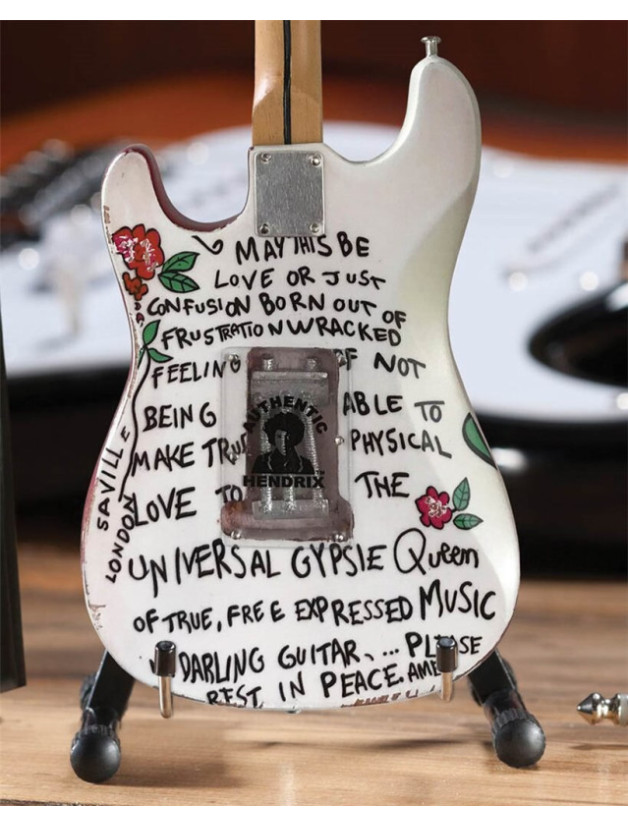 MAY THIS BE
LOVE OR JUST
CONFUSION BORN OUT OF
FRUSTRATION WRACKED
FEELING OF NOT
BEING ABLE TO
MAKE TRUE PHYSICAL
LOVE TO THE
UNIVERSAL GYPSIE Queen
OF TRUE, FREE EXPRESSED MUSIC
DARLING GUITAR, ... PLEASE
REST IN PEACE. AMEN
SAVILLE
LONDON
AUTHENTIC
HENDRIX